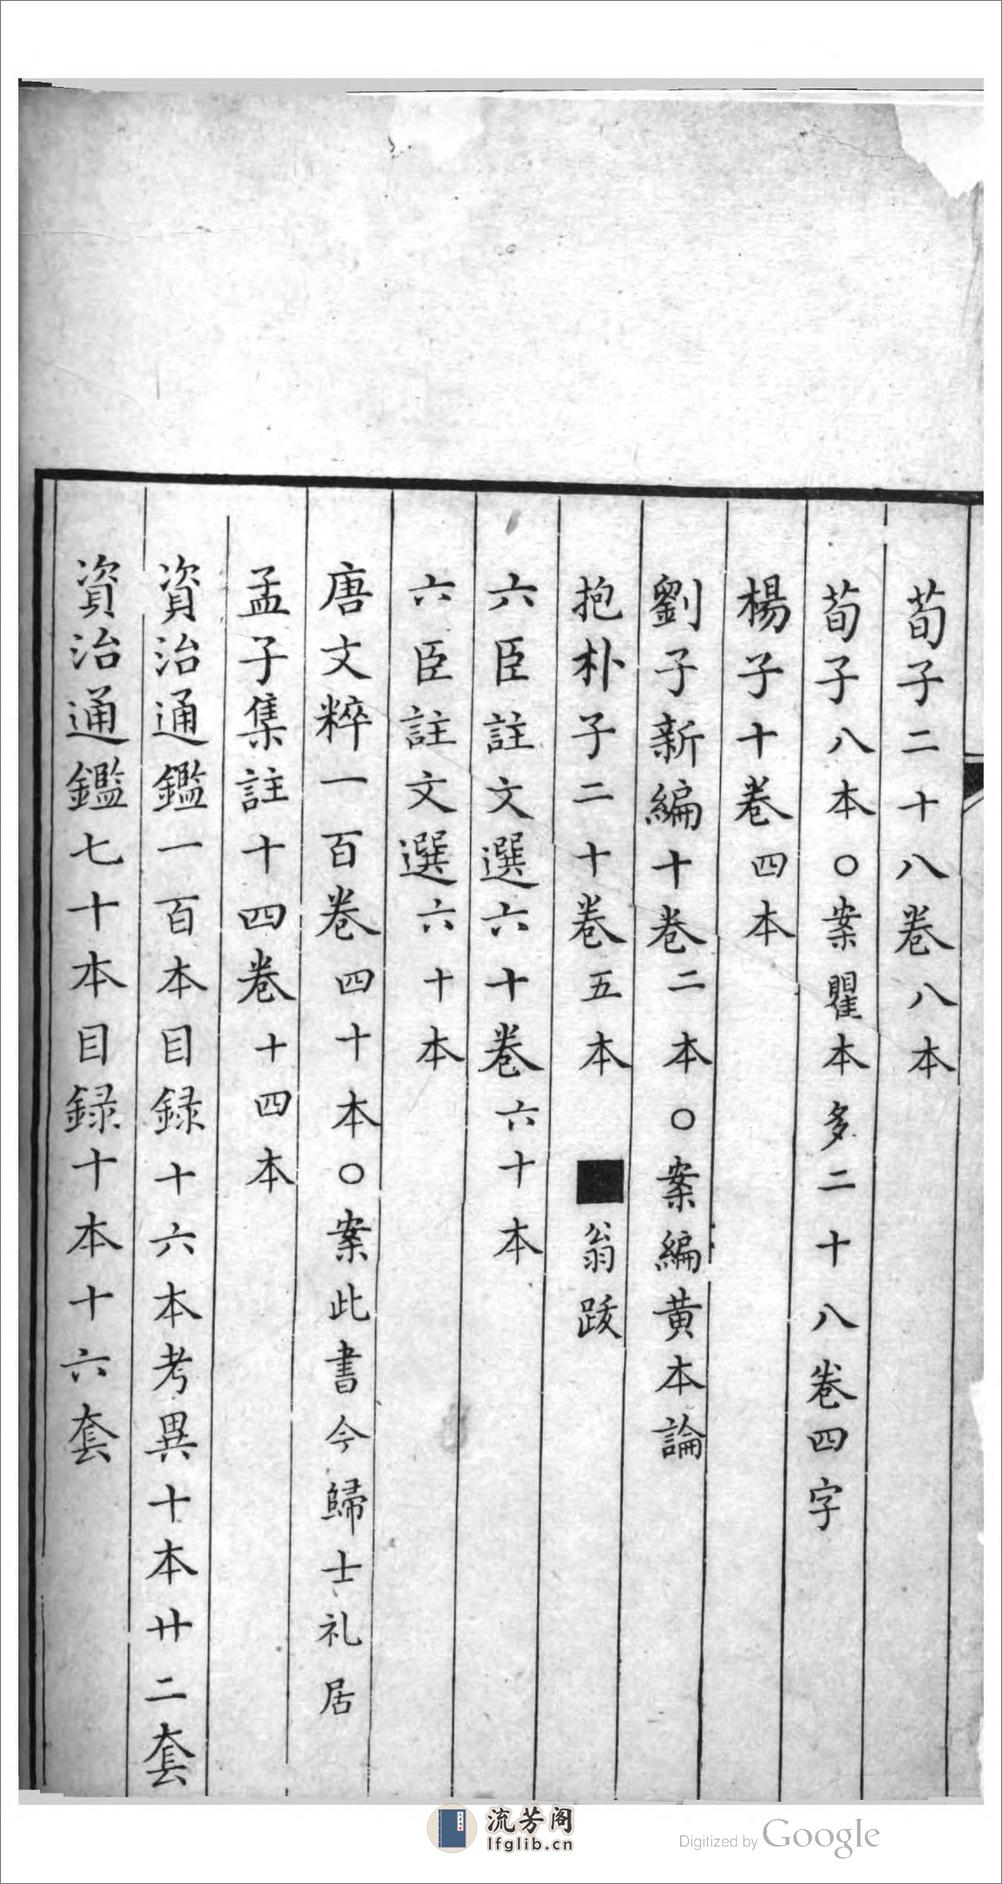 荀子二十八卷八本
荀子八本○案瞿本多二十八卷四字
楊子十卷四本
劉子新編十卷二本○案編黄本論
抱朴子二十卷五本 ■翁跋
六臣註文選六十卷六十本
六臣註文選六十本
唐文粹一百卷四十本○案此書今歸士礼居
孟子集註十四卷十四本
資治通鑑一百本目録十六本考異十本廿二套
資治通鑑七十本目録十本十六套
流芳阁
lfglib.cn
Digitized by Google